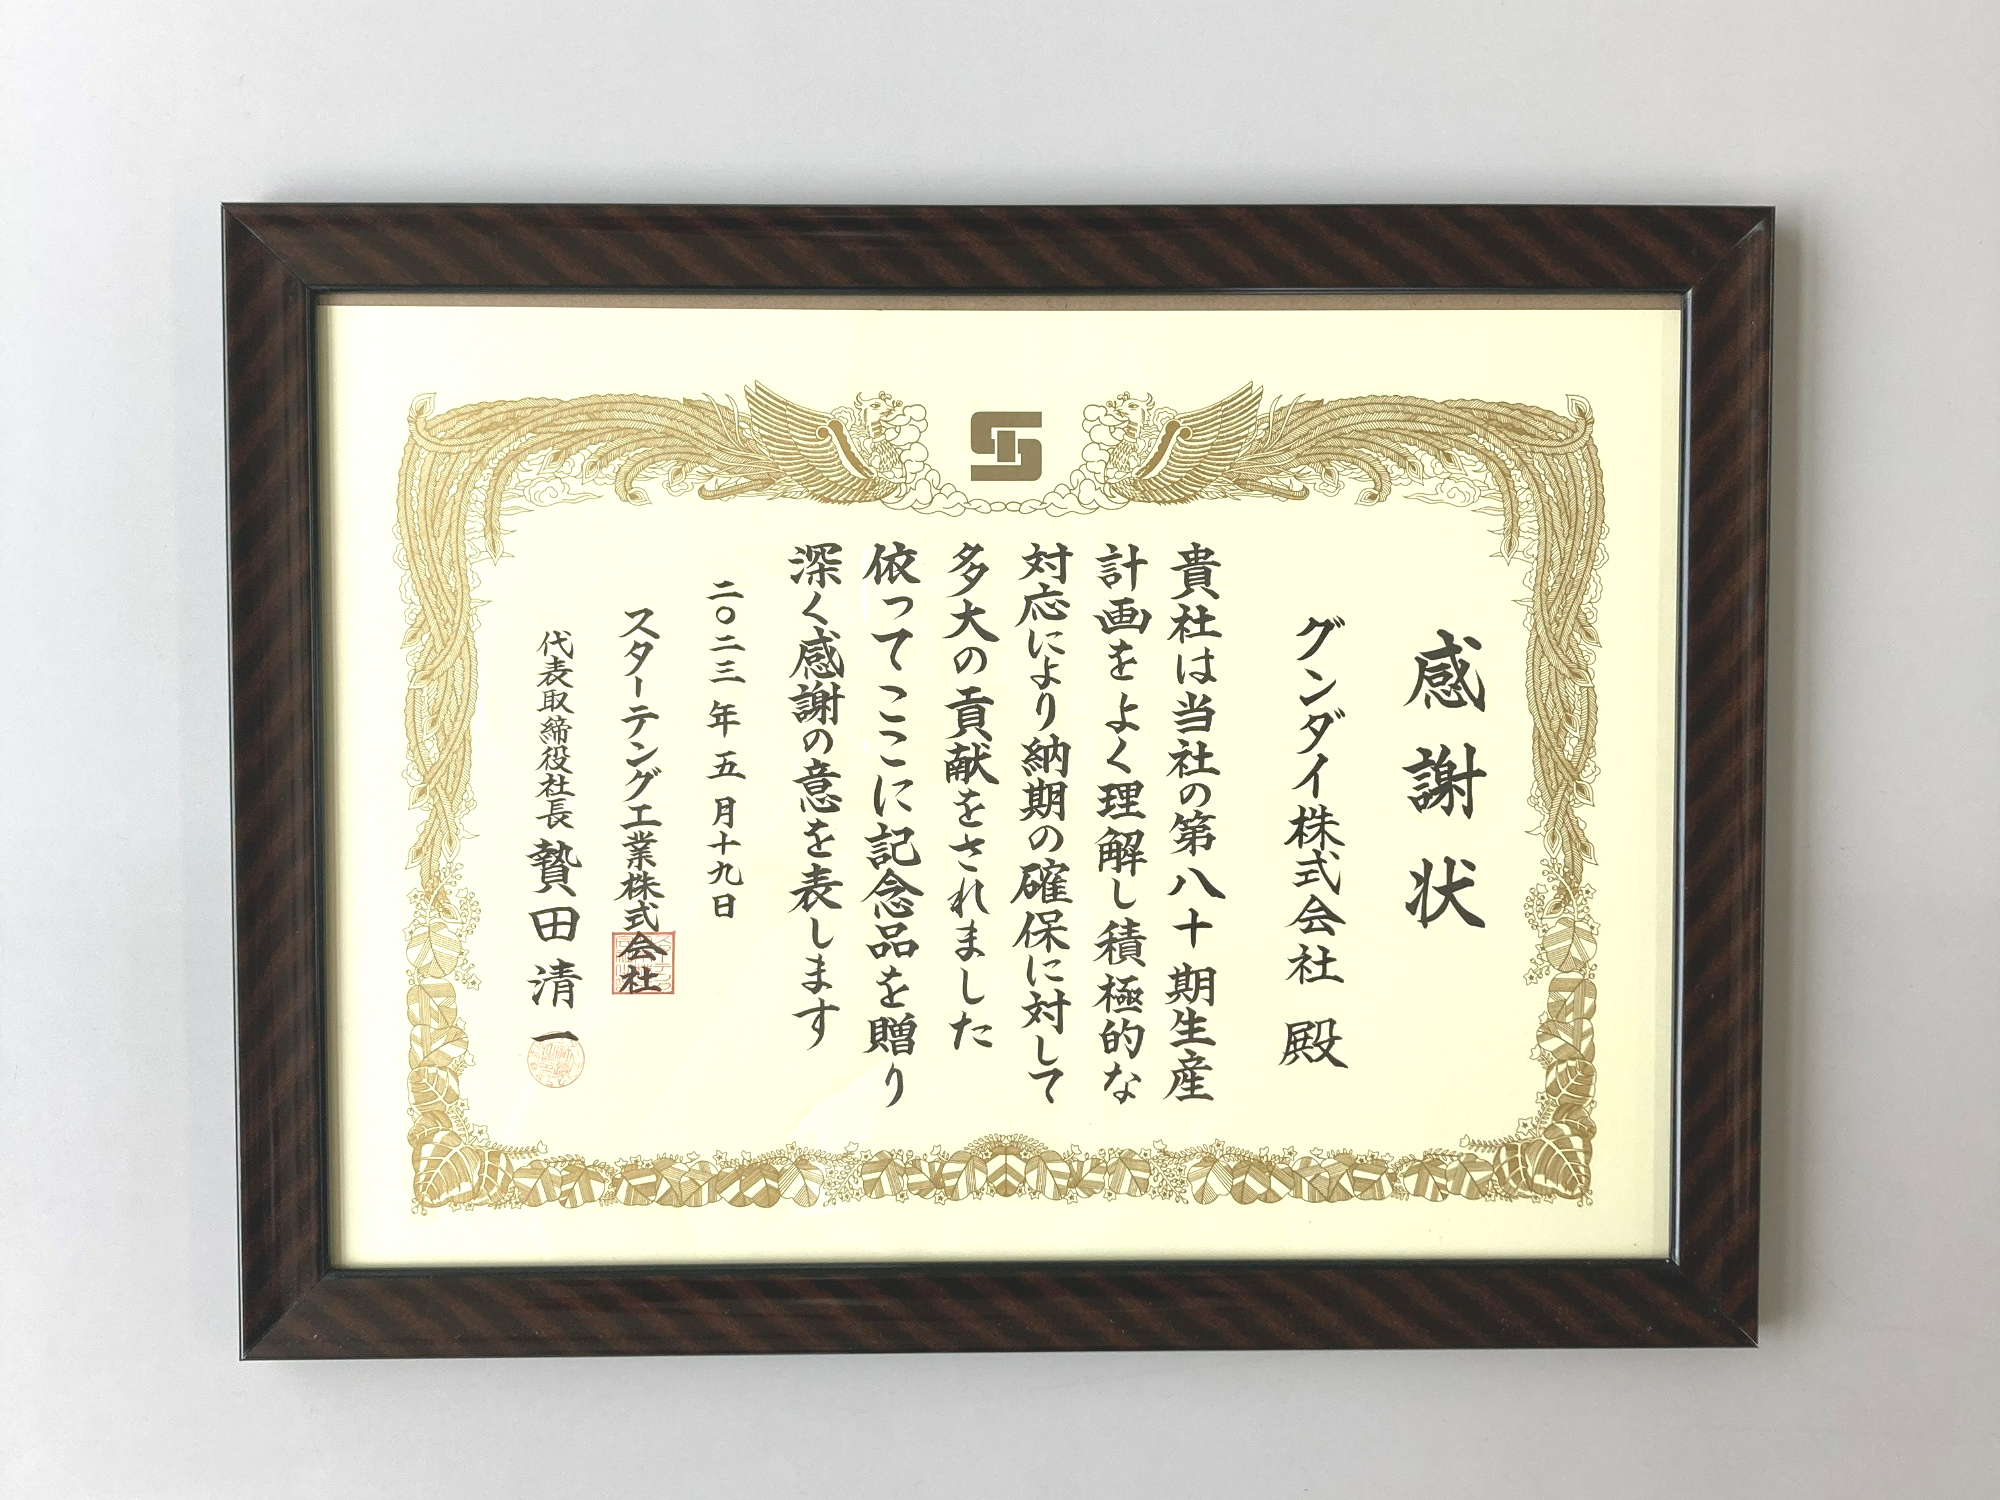 感謝状
グンダイ株式会社 殿
貴社は当社の第八十期生産
計画をよく理解し積極的な
対応により納期の確保に対して
多大の貢献をされました
依ってここに記念品を贈り
深く感謝の意を表します
二〇二三年五月十九日
スターテング工業株式会社
代表取締役社長 贄田清一